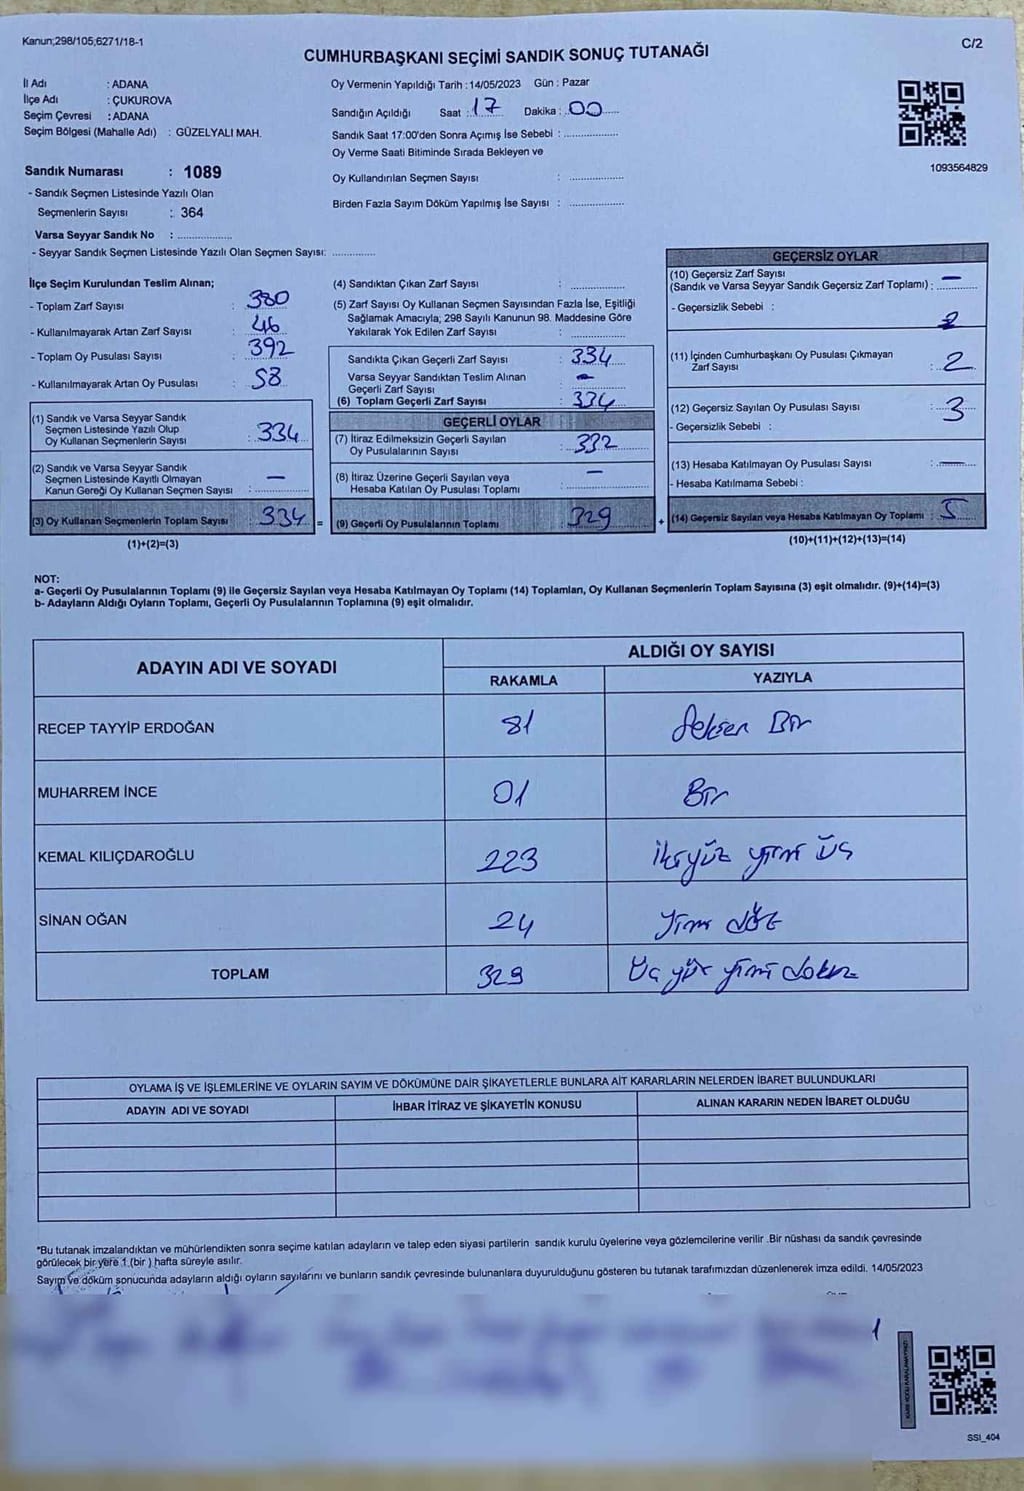 Kanun;298/105;6271/18-1
C/2
CUMHURBAŞKANI SEÇİMİ SANDIK SONUÇ TUTANAĞI
İl Adı : ADANA
İlçe Adı : ÇUKUROVA
Seçim Çevresi : ADANA
Seçim Bölgesi (Mahalle Adı) : GÜZELYALI MAH.
Oy Vermenin Yapıldığı Tarih : 14/05/2023 Gün : Pazar
Sandığın Açıldığı Saat : 17 Dakika : 00
Sandık Saat 17:00'den Sonra Açımış İse Sebebi :
Oy Verme Saati Bitiminde Sırada Bekleyen ve
Oy Kullandırılan Seçmen Sayısı :
Birden Fazla Sayım Döküm Yapılmış İse Sayısı :
1093564829
Sandık Numarası : 1089
- Sandık Seçmen Listesinde Yazılı Olan
Seçmenlerin Sayısı : 364
Varsa Seyyar Sandık No :
- Seyyar Sandık Seçmen Listesinde Yazılı Olan Seçmen Sayısı:
İlçe Seçim Kurulundan Teslim Alınan;
- Toplam Zarf Sayısı : 380
- Kullanılmayarak Artan Zarf Sayısı : 46
- Toplam Oy Pusulası Sayısı : 392
- Kullanılmayarak Artan Oy Pusulası : 58
(1) Sandık ve Varsa Seyyar Sandık
Seçmen Listesinde Yazılı Olup
Oy Kullanan Seçmenlerin Sayısı : 334
(2) Sandık ve Varsa Seyyar Sandık
Seçmen Listesinde Kayıtlı Olmayan
Kanun Gereği Oy Kullanan Seçmen Sayısı : —
(3) Oy Kullanan Seçmenlerin Toplam Sayısı : 334 =
(1)+(2)=(3)
(4) Sandıktan Çıkan Zarf Sayısı :
(5) Zarf Sayısı Oy Kullanan Seçmen Sayısından Fazla İse, Eşitliği
Sağlamak Amacıyla; 298 Sayılı Kanunun 98. Maddesine Göre
Yakılarak Yok Edilen Zarf Sayısı :
Sandıkta Çıkan Geçerli Zarf Sayısı : 334
Varsa Seyyar Sandıktan Teslim Alınan
Geçerli Zarf Sayısı : —
(6) Toplam Geçerli Zarf Sayısı : 334
GEÇERLİ OYLAR
(7) İtiraz Edilmeksizin Geçerli Sayılan
Oy Pusulalarının Sayısı : 332
(8) İtiraz Üzerine Geçerli Sayılan veya
Hesaba Katılan Oy Pusulası Toplamı : —
(9) Geçerli Oy Pusulalarının Toplamı : 329 +
GEÇERSİZ OYLAR
(10) Geçersiz Zarf Sayısı
(Sandık ve Varsa Seyyar Sandık Geçersiz Zarf Toplamı) : —
- Geçersizlik Sebebi :
(11) İçinden Cumhurbaşkanı Oy Pusulası Çıkmayan
Zarf Sayısı : 2
(12) Geçersiz Sayılan Oy Pusulası Sayısı : 3
- Geçersizlik Sebebi :
(13) Hesaba Katılmayan Oy Pusulası Sayısı : —
- Hesaba Katılmama Sebebi :
(14) Geçersiz Sayılan veya Hesaba Katılmayan Oy Toplamı : 5
(10)+(11)+(12)+(13)=(14)
NOT:
a- Geçerli Oy Pusulalarının Toplamı (9) ile Geçersiz Sayılan veya Hesaba Katılmayan Oy Toplamı (14) Toplamları, Oy Kullanan Seçmenlerin Toplam Sayısına (3) eşit olmalıdır. (9)+(14)=(3)
b- Adayların Aldığı Oyların Toplamı, Geçerli Oy Pusulalarının Toplamına (9) eşit olmalıdır.
ADAYIN ADI VE SOYADI
ALDIĞI OY SAYISI
RAKAMLA YAZIYLA
RECEP TAYYİP ERDOĞAN 81 Seksen Bir
MUHARREM İNCE 01 Bir
KEMAL KILIÇDAROĞLU 223 ikiyüz yirmi üç
SİNAN OĞAN 24 Yirmi dört
TOPLAM 329 Üç yüz yirmi dokuz
OYLAMA İŞ VE İŞLEMLERİNE VE OYLARIN SAYIM VE DÖKÜMÜNE DAİR ŞİKAYETLERLE BUNLARA AİT KARARLARIN NELERDEN İBARET BULUNDUKLARI
ADAYIN ADI VE SOYADI İHBAR İTİRAZ VE ŞİKAYETİN KONUSU ALINAN KARARIN NEDEN İBARET OLDUĞU
*Bu tutanak imzalandıktan ve mühürlendikten sonra seçime katılan adayların ve talep eden siyasi partilerin sandık kurulu üyelerine veya gözlemcilerine verilir .Bir nüshası da sandık çevresinde
görülecek bir yere 1 (bir ) hafta süreyle asılır.
Sayım ve döküm sonucunda adayların aldığı oyların sayılarını ve bunların sandık çevresinde bulunanlara duyurulduğunu gösteren bu tutanak tarafımızdan düzenlenerek imza edildi. 14/05/2023
SSI_404